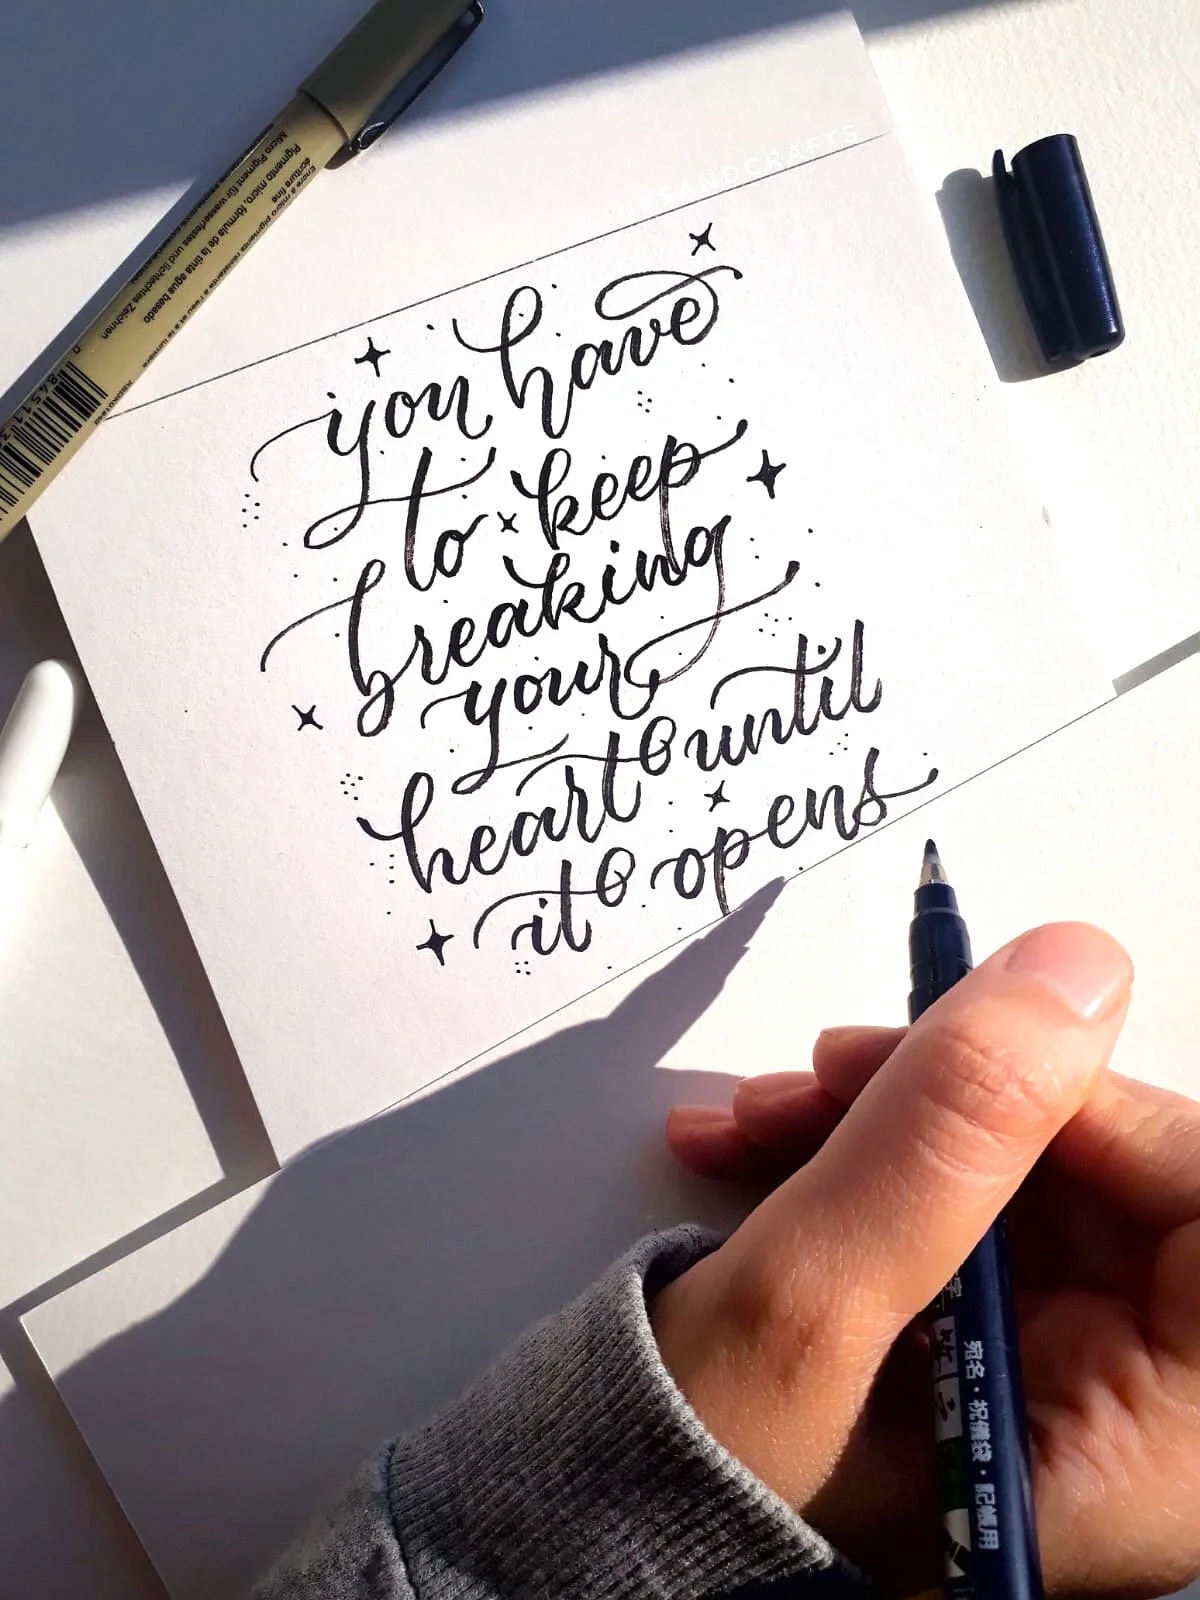 INKSANDCRAFTS
you have
to keep
breaking
your
heart until
it opens
Micro Pigment für wasserfestes und lichtechtes Zeichnen
Pigmento micro, fórmula de la tinta agua basado
écriture fine
宛名・祝儀袋・記帳用